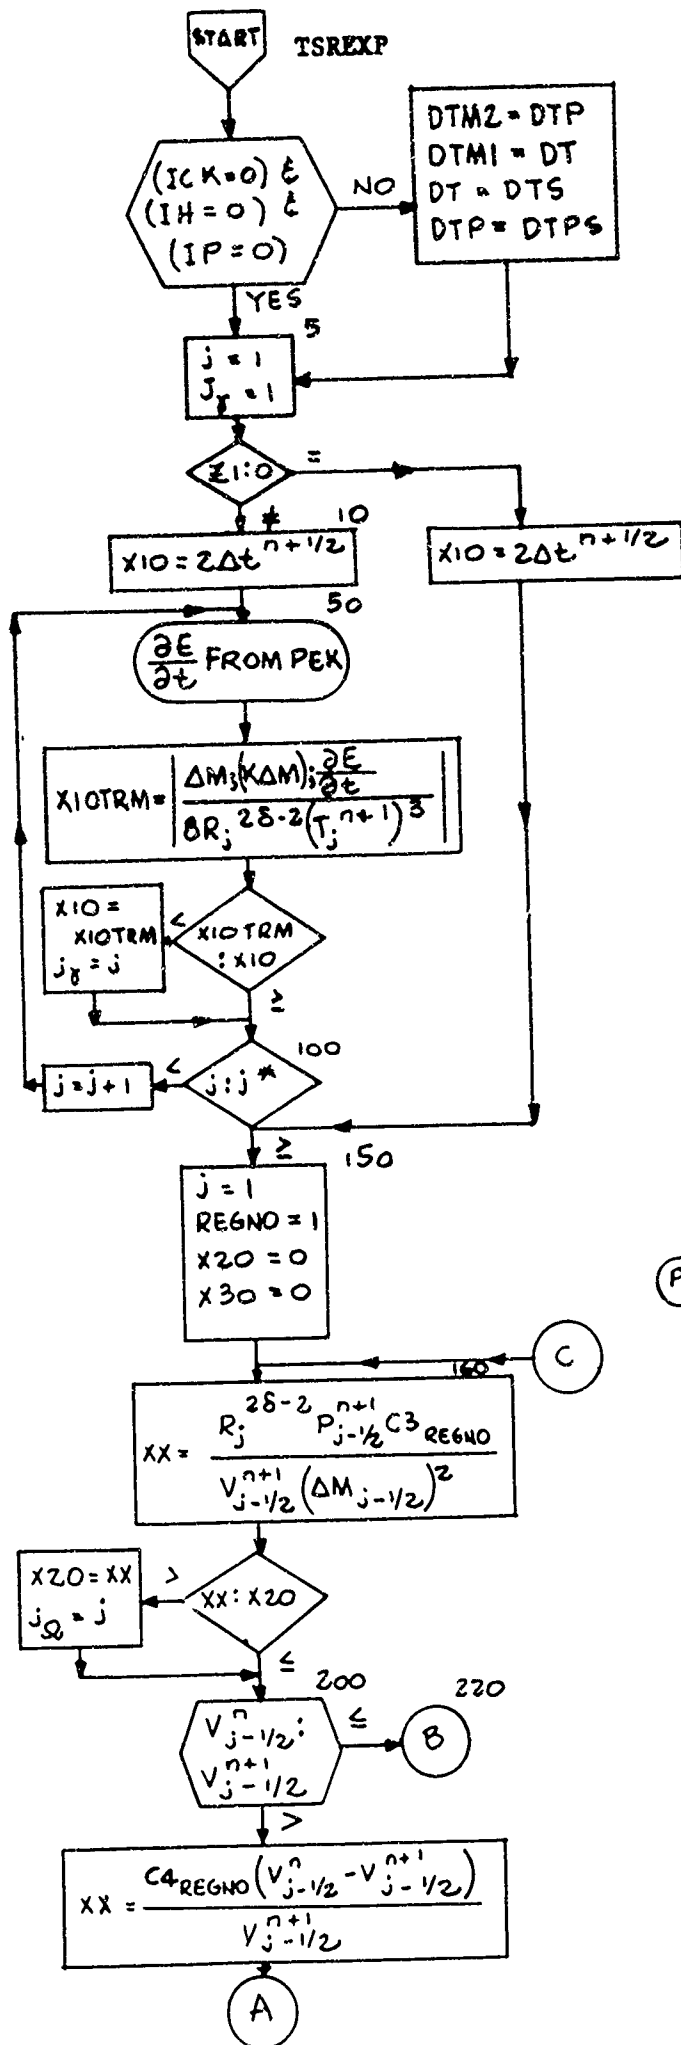 START
TSREXP
(ICK=0) &
(IH=0) &
(IP=0)
NO
DTM2 = DTP
DTM1 = DT
DT = DTS
DTP = DTPS
YES
5
j = 1
J_γ = 1
Z1:0
=
≠
10
X10 = 2Δt^{n+1/2}
X10 = 2Δt^{n+1/2}
50
∂E/∂t FROM PEK
X10TRM = |ΔM_j(KΔM)_j ∂E/∂t / 8R_j^{2δ-2}(T_j^{n+1})^3|
X10 =
X10TRM
j_γ = j
<
X10TRM
: X10
≥
100
j = j+1
<
j : j*
≥
150
j = 1
REGNO = 1
X20 = 0
X30 = 0
P
C
160
XX = R_j^{2δ-2} P_{j-1/2}^{n+1} C3_{REGNO} / V_{j-1/2}^{n+1} (ΔM_{j-1/2})^2
X20 = XX
j_Ω = j
>
XX : X20
≤
200
220
V_{j-1/2}^{n} :
V_{j-1/2}^{n+1}
≤
B
>
XX = C4_{REGNO} (V_{j-1/2}^{n} - V_{j-1/2}^{n+1}) / V_{j-1/2}^{n+1}
A